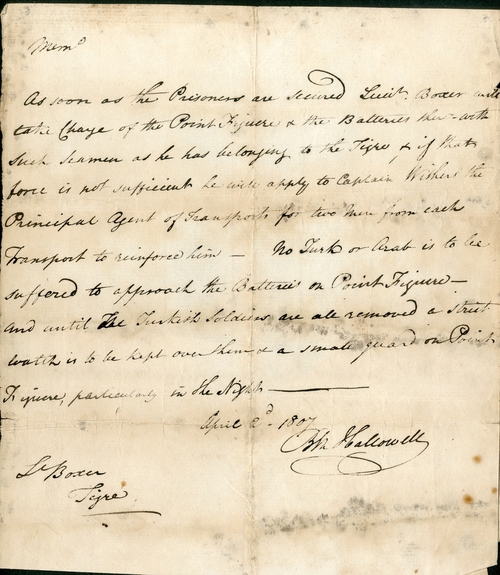 Mem.o
As soon as the Prisoners are secured Lieut. Boxer will
take Charge of the Point Figuere & the Batteries there with
such Seamen as he has belonging to the Tigre, & if that
force is not sufficient he will apply to Captain Withers the
Principal Agent of Transports for two men from each
Transport to reinforce him — No Turk or Arab is to be
suffered to approach the Batteries on Point Figuere —
and until the Turkish Soldiers are all removed a strict
watch is to be kept over them & a small guard on Point
Figuere, particularly in the Night —
April 2d. 1807
Hallowell
Lt Boxer
Tigre